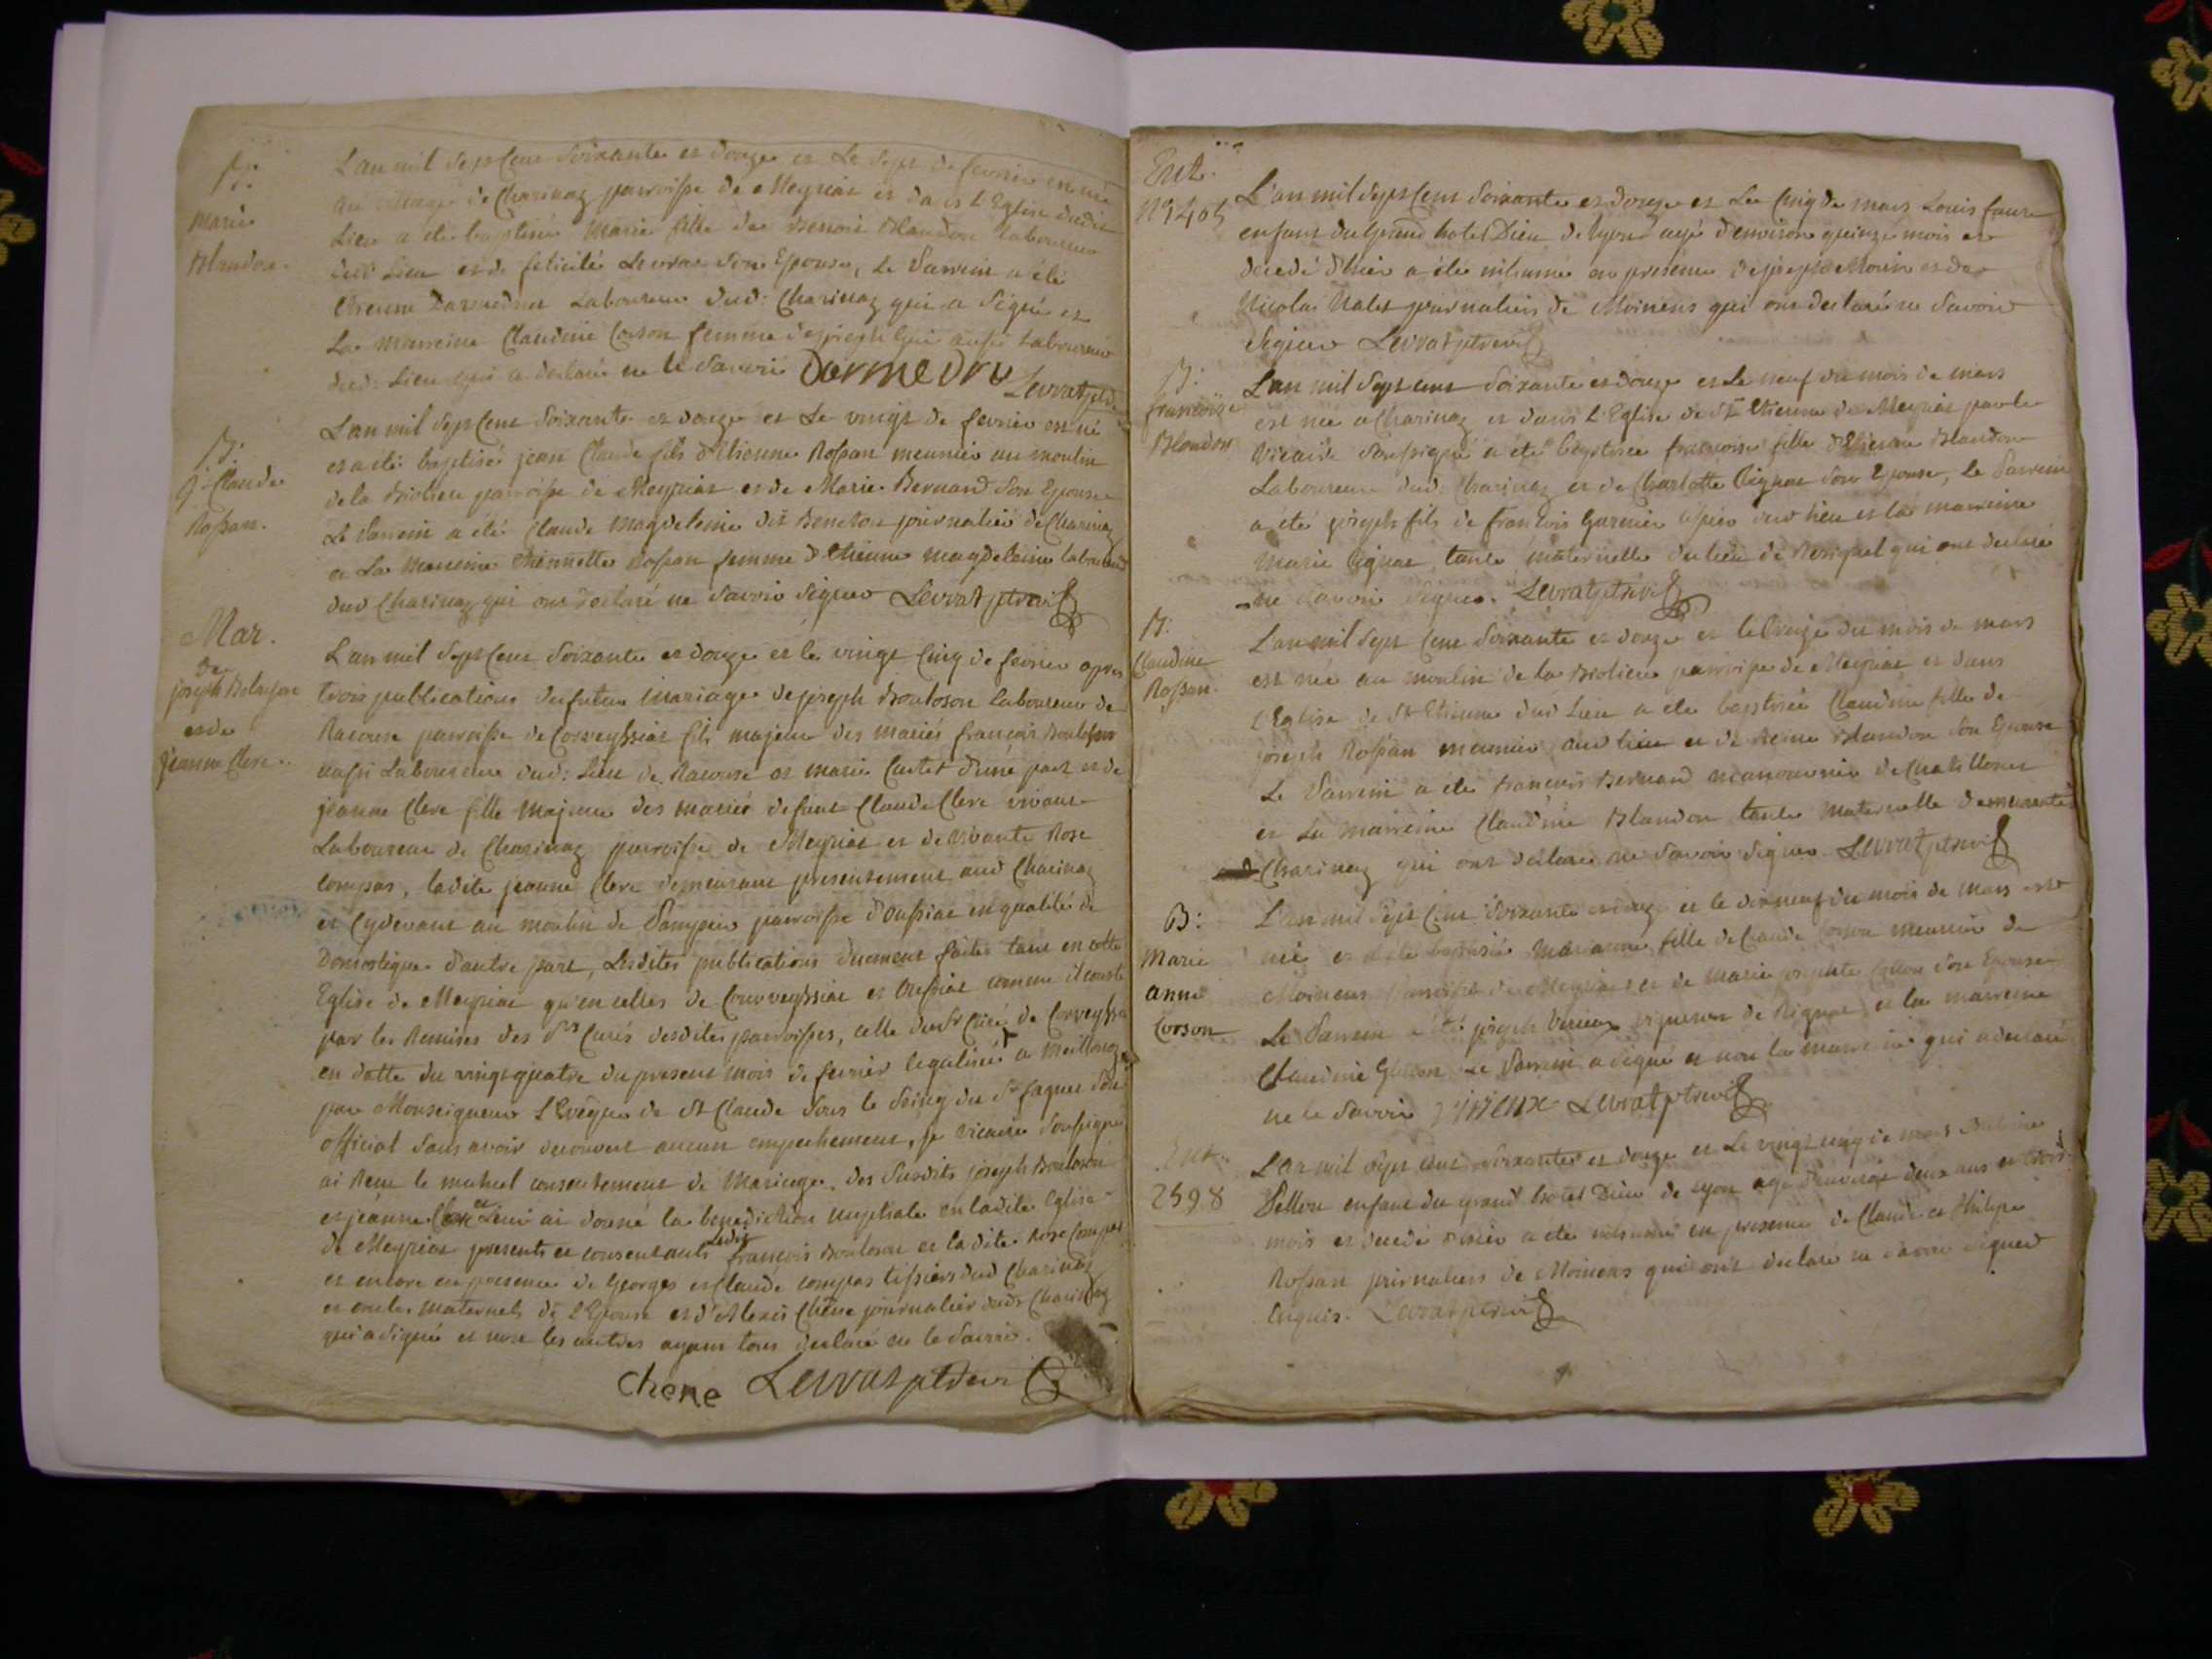 B:
Marie
Blandon.
L'an mil Sept Cent Soixante et douze et Le Sept de fevrier est née
au village de Charinaz parroisse de Meyriat et dans L'Eglise dudit
Lieu a été baptisée Marie fille de Benoit Blandon laboureur
dud: Lieu et de felicité Levrat Son Epouse, Le Parrein a été
Etienne Darmedru Laboureur dud: Charinaz qui a Signé et
La Marreine Claudine Corson femme de joseph aussi Laboureur
dud: Lieu qui a declaré ne le Savoir Darmedru
Levrat ptre
B.
J. Claude
Rossan.
L'an mil Sept Cent Soixante et douze et Le vingt de fevrier est né
et a été baptisé jean Claude fils d'Etienne Rossan meunier au moulin
de la Bioliere parroisse de Meyriat et de Marie Bernard Son Epouse
Le Parrein a été Claude Magdeleine dit Beneton journalier de Charinaz
et La Marreine Thiennette Rossan femme d'Etienne magdeleine laboureur
dud Charinaz qui ont declaré ne Savoir Signer Levrat ptre vic
Mar.
de
joseph Bolozon
et de
jeanne Clerc.
L'an mil Sept Cent Soixante et douze et le vingt Cinq de fevrier apres
trois publications du futur Mariage de joseph Bouloson laboureur de
Racouse parroisse de Corveyssiat fils majeur des mariés françois Bouloson
aussi Laboureur dud: Lieu de Racouse et marie Cartet d'une part et de
jeanne Clerc fille Majeure des mariés defunt Claude Clerc vivant
Laboureur de Charinaz parroisse de Meyriat et de vivante Rose
Compas, ladite jeanne Clerc demeurant presentement aud Charinaz
et Cydevant au moulin de Pampier parroisse d'Oussiat en qualité de
Domestique d'autre part, Lesdites publications duement faites tant en cette
Eglise de Meyriat qu'en celles de Courveyssiat et Oussiat comme il conste
par les Remises des Srs Curés desdites parroisses, celle dudt Sr Curé de Corveyssiat
en datte du vingt quatre du present mois de fevrier legalisée a Meillonaz
par Monseigneur L'Eveque de St Claude Sous le Seing du Sr jaquet Son
official Sans avoir decouvert aucun empechement, je vicaire Soussigné
ai Reçu le mutuel consentement de Mariage des Susdits joseph Bouloson
et jeanne Clerc et Leur ai donné la benediction nuptiale en ladite Eglise
de Meyriat presents et consentants Ledit françois Bouloson et ladite Rose Compas
et encore en presence de Georges et Claude Compas tissiers dud Charinaz
et oncles maternels de l'Epouse et d'Alexis Chêne journalier dudt Charinaz
qui a Signé et non les autres ayant tous declaré ne le Savoir.
Chene Levrat ptre vic
Ent.
N° 1405
L'an mil Sept Cent Soixante et douze et Le Cinq de mars Louis faure
enfant du Grand hotel Dieu de Lyon agé d'environ quinze mois et
decedé d'hier a été inhumé en presence de joseph Morin et de
Nicolas Nalet journaliers de Moinens qui ont declaré ne Savoir
Signer Levrat ptre vic
B:
francoise
Blandon
L'an mil Sept cent Soixante et douze et Le neuf du mois de mars
est née a Charinaz et dans L'Eglise de St Etienne de Meyriat par le
vicaire Soussigné a été baptisée francoise fille d'Etienne Blandon
Laboureur dud: Charinaz et de Charlotte Pignat Son Epouse, Le Parrein
a été joseph fils de francois Garnier tissier dud lieu et la marreine
Marie Pignat tante maternelle du lieu de qui ont declaré
ne Savoir Signer. Levrat ptre vic
B.
Claudine
Rossan.
L'an mil Sept Cent Soixante et douze et le treize du mois de mars
est née au moulin de la Bioliere parroisse de Meyriat et dans
l'Eglise de St Etienne dud Lieu a été baptisée Claudine fille de
joseph Rossan meunier aud lieu et de Reine Blandon Son Epouse
Le Parrein a été francois Bernard manouvrier de Chatillonet
et La Marreine Claudine Blandon tante Maternelle demeurante
Charinaz qui ont declaré ne Savoir Signer Levrat ptre vic
B:
Marie
anne
Corson
L'an mil Sept Cent Soixante et douze et le dixneuf du mois de mars est
née et a été baptisée Marianne fille de Claude Corson meunier de
Moinens Parroisse de Meyriat et de Marie josephte Son Epouse
Le Parrein a été joseph Vireux vigneron de Rignat et la marreine
Claudine Le Parrein a Signé et non la marreine qui a declaré
ne le Savoir Vireux Levrat ptre vic
Ent.
2598
L'an mil Sept cent Soixante et douze et Le vingt cinq de mars
Pellou enfant du grand hotel Dieu de Lyon agé d'environ deux ans et trois
mois et decedé d'hier a été inhumé en presence de Claude et Philipe
Rossan journaliers de Moinens qui ont declaré ne Savoir Signer
Enquis. Levrat ptre vic